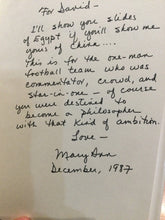 For David—
I'll show you slides
of Egypt if you'll show me
yours of China....
This is for the one-man
football team who was
commentator, crowd, and
star-in-one — of course
you were destined to
become a philosopher
with that kind of ambition.
Love—
Mary Ann
December, 1987